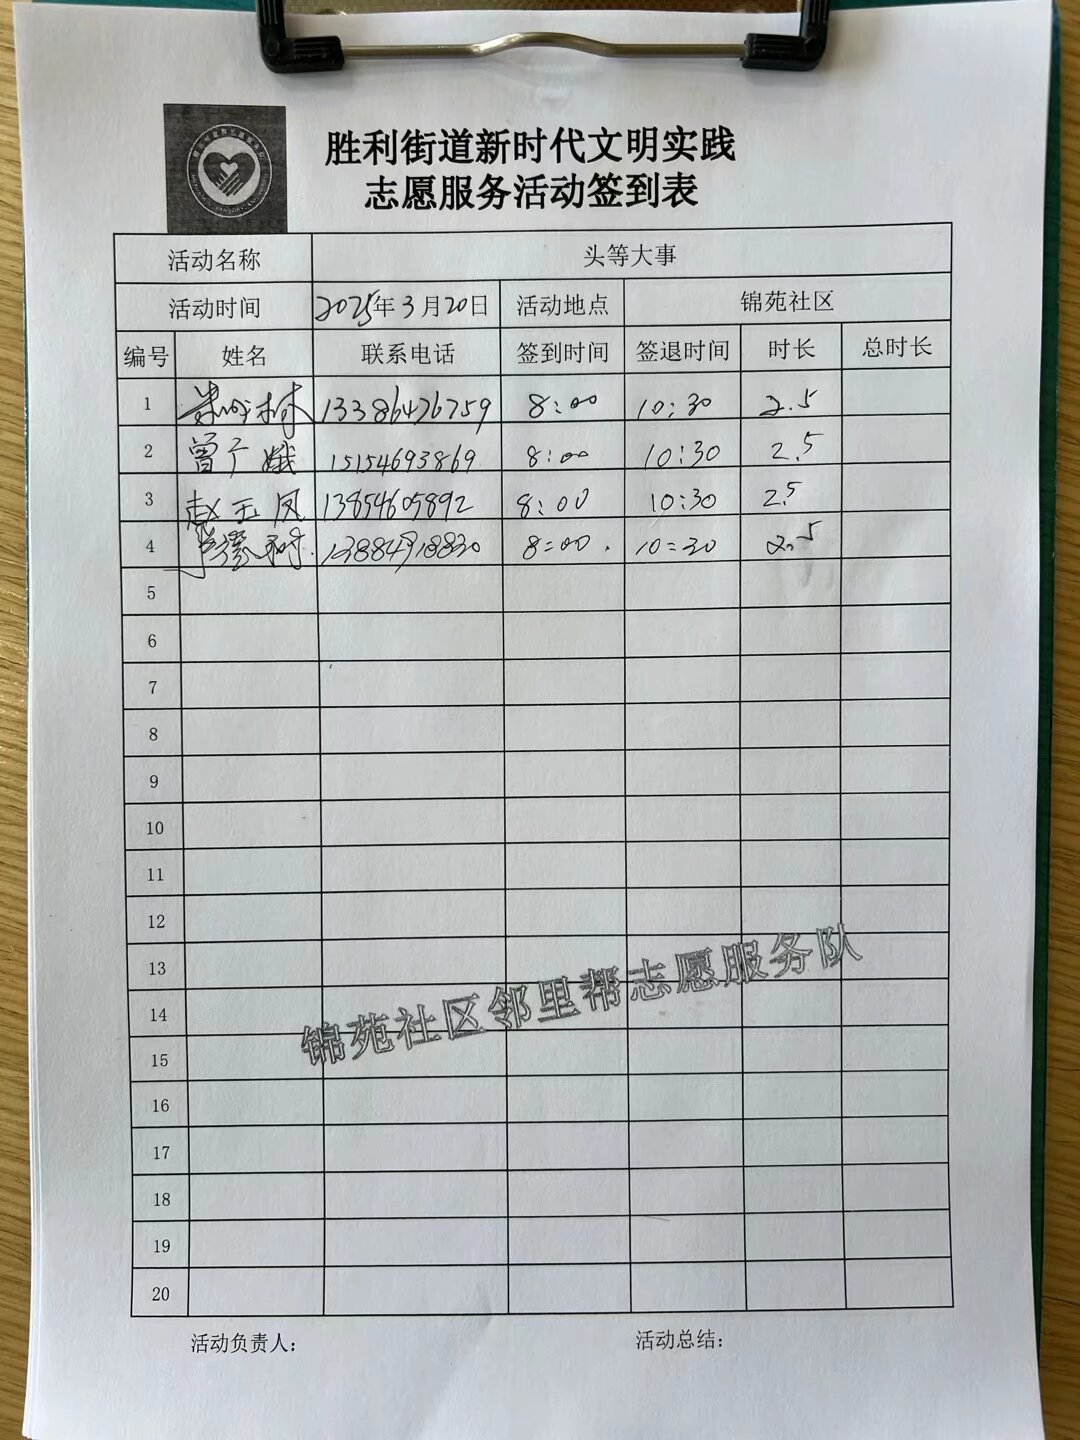 胜利街道新时代文明实践
志愿服务活动签到表
活动名称 头等大事
活动时间 2025年3月20日 活动地点 锦苑社区
编号 姓名 联系电话 签到时间 签退时间 时长 总时长
1 13386476759 8:00 10:30 2.5
2 曾广娥 15154693869 8:00 10:30 2.5
3 赵玉凤 13854605892 8:00 10:30 2.5
4 13884918830 8:00 10:30 2.5
5
6
7
8
9
10
11
12
13
14
15
16
17
18
19
20
锦苑社区邻里帮志愿服务队
活动负责人： 活动总结：